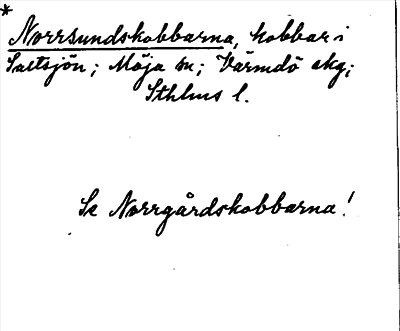 *
Norrsundskobbarna, kobbar i
Saltsjön; Möja sn; Värmdö skg;
Sthlms l.
Se Norrgårdskobbarna!